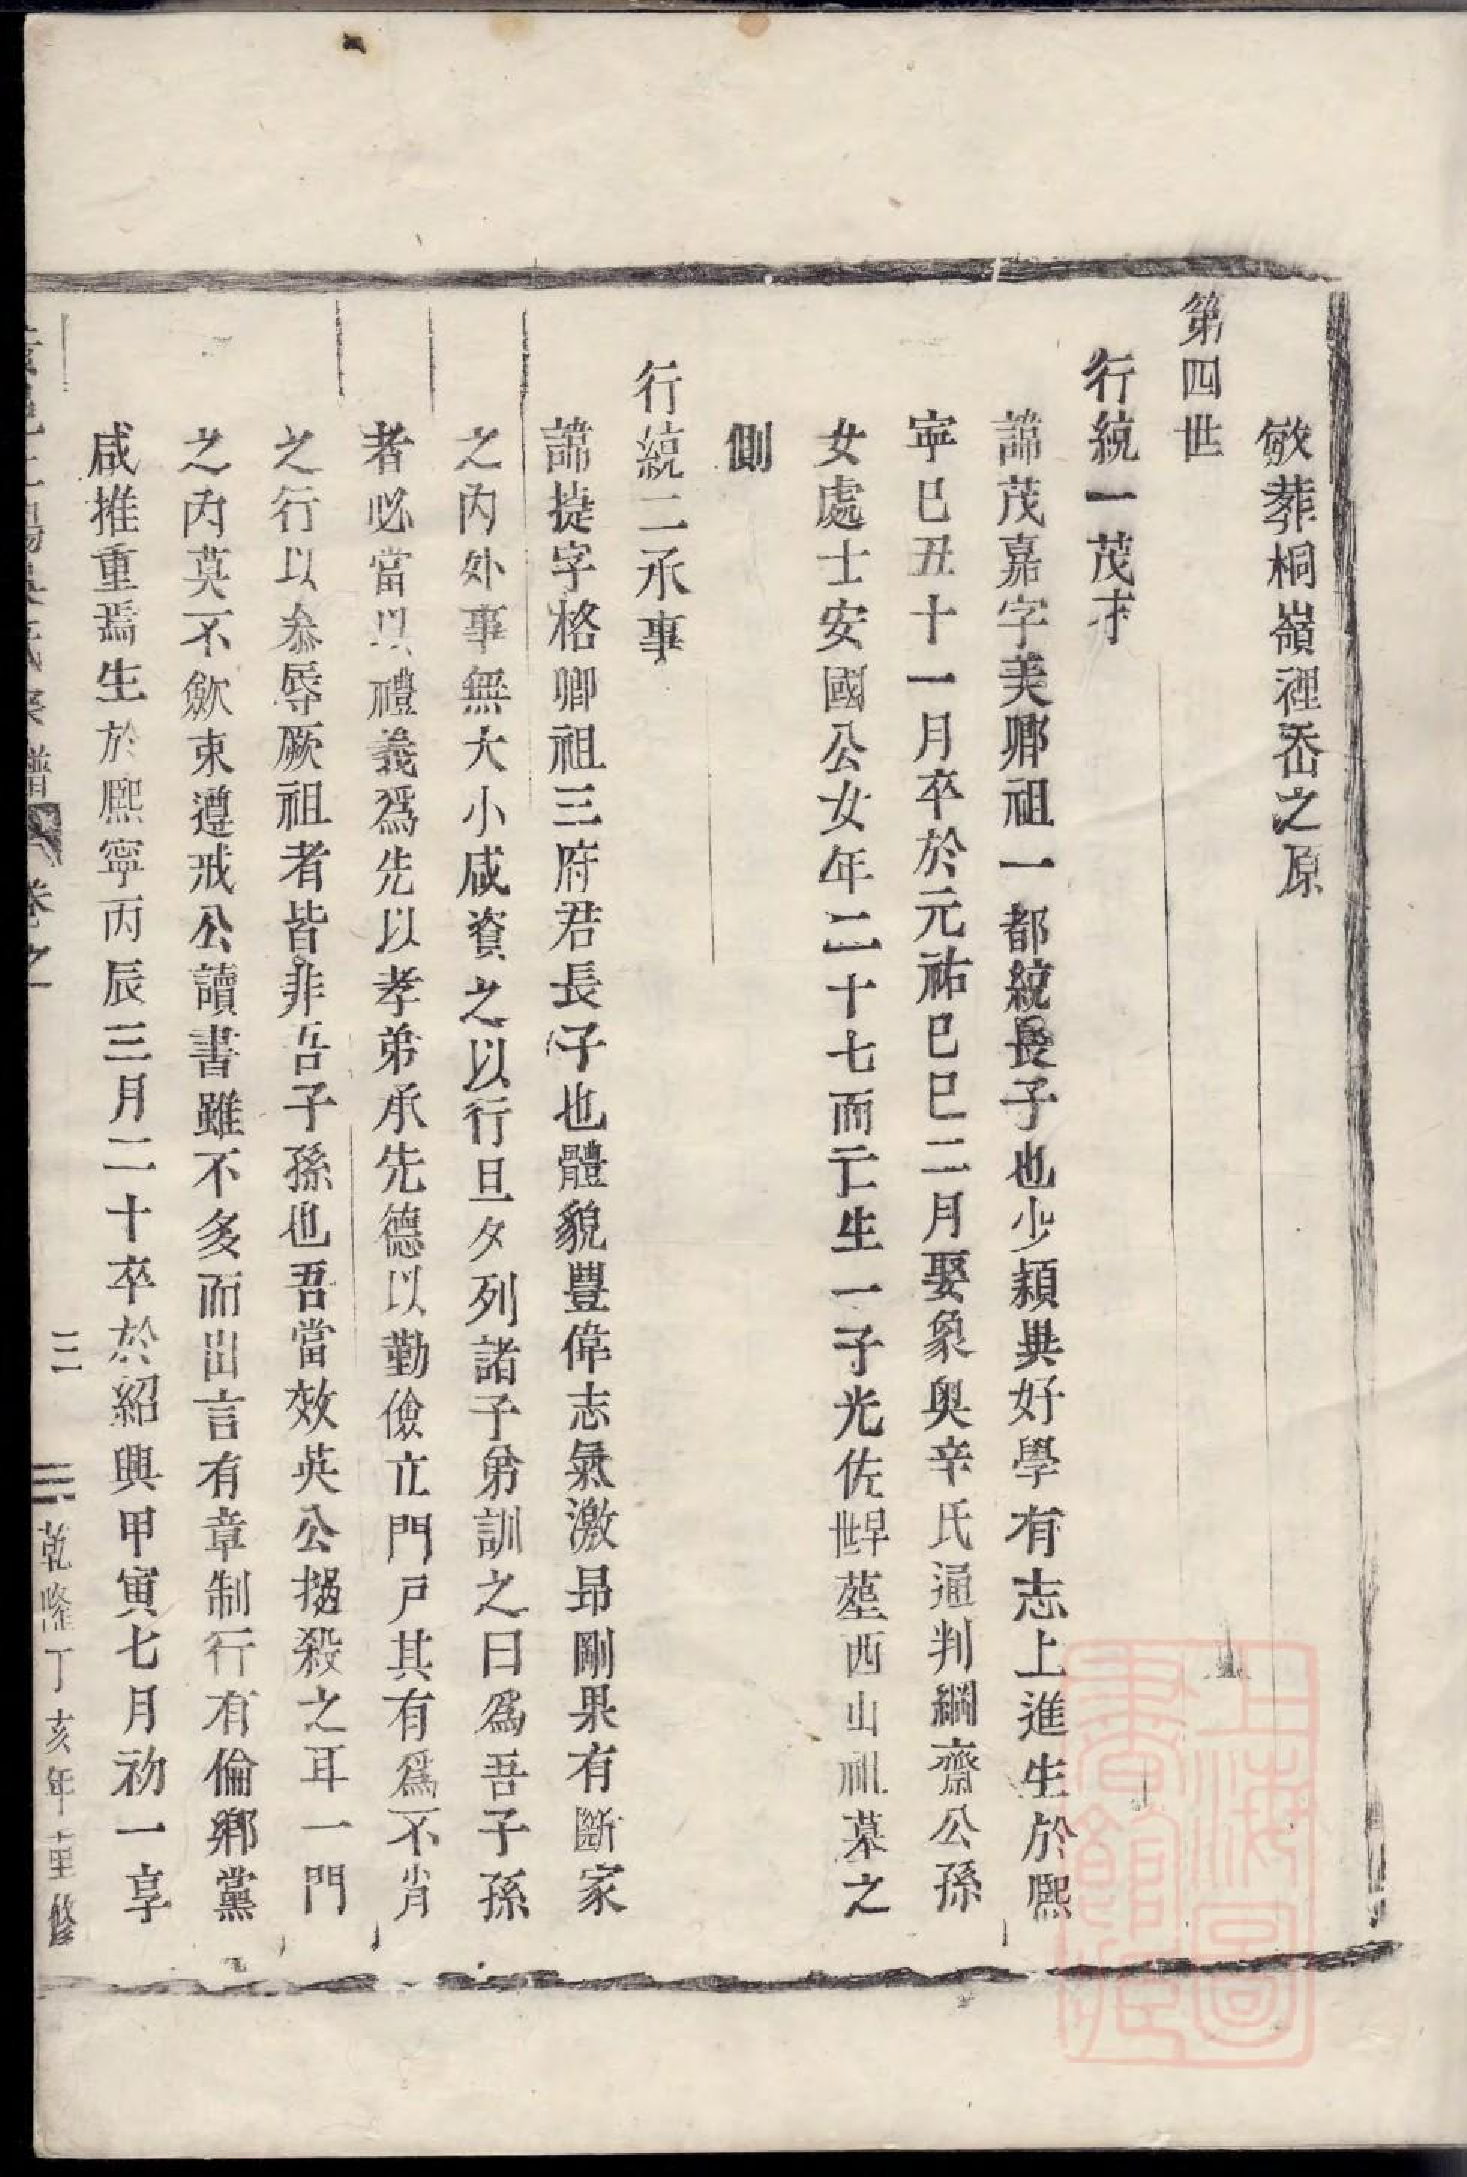 敏葬桐嶺裡岙之原
第四世
行統一茂才
諱茂嘉字美卿祖一都統長子也少穎異好學有志上進生於熙
寧已丑十一月卒於元祐已巳二月娶象奥辛氏通判綱齋公孫
女處士安國公女年二十七而亡生一子光佐世早塟西山祖墓之
側
行統二承事
諱㨗字格卿祖三府君長子也體貌豐偉志氣激昂剛果有斷家
之內外事無大小咸資之以行旦夕列諸子弟訓之曰爲吾子孫
者必當以禮義爲先以孝弟承先德以勤儉立門戸其有爲不肖
之行以忝辱厥祖者皆非吾子孫也吾當效英公撾殺之耳一門
之內莫不歛束遵戒公讀書雖不多而出言有章制行有倫鄉黨
咸推重焉生於熙寧丙辰三月二十卒於紹興甲寅七月初一享
氏宗譜 卷之一 三 乾隆丁亥年重修
上海圖書館藏